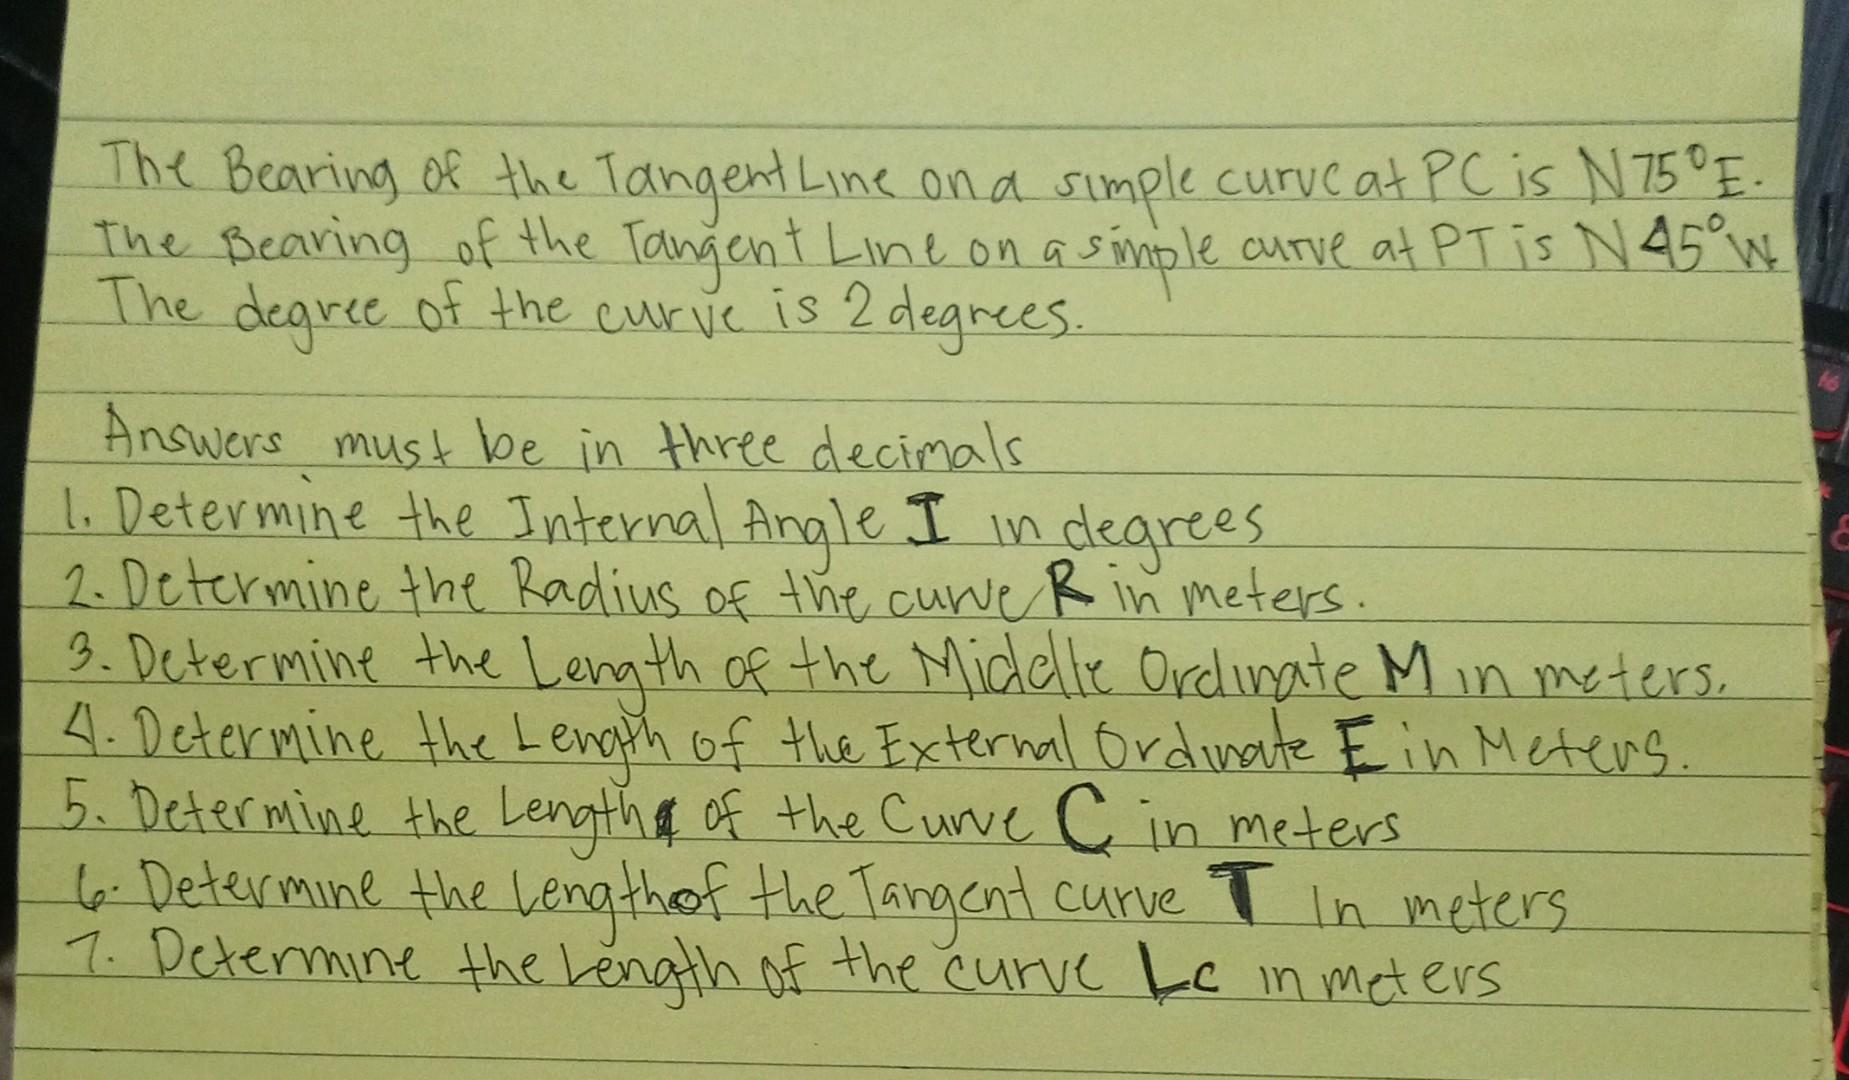 The Bearing of the Tangent Line on a simple curve at PC is N75°E.
The Bearing of the Tangent Line on a simple curve at PT is N45°W
The degree of the curve is 2 degrees.
Answers must be in three decimals
1. Determine the Internal Angle I in degrees
2. Determine the Radius of the curve R in meters.
3. Determine the Length of the Middle Ordinate M in meters.
4. Determine the Length of the External Ordinate E in Meters.
5. Determine the Length of the Curve C in meters
6. Determine the Length of the Tangent curve T In meters
7. Determine the Length of the curve Lc in meters